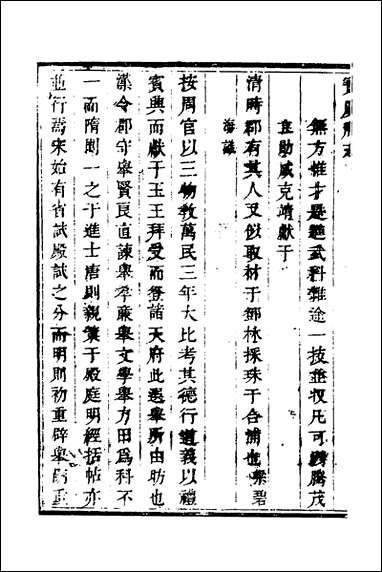 寶慶府志
無方惟才是進武科雜途一技並收凡可
騰茂
直助威克靖獻于
清時郡有其人又似取材于鄧林採珠于合浦也
紫碧
海誌
按周官以三物敎萬民三年大比考其德行道義以禮
賓興而獻于王王拜受而登諸天府此選舉所由昉也
漢令郡守舉賢良直諫舉孝廉舉文學舉力田爲科不
一而隋則一之于進士唐則親策于殿庭明經括帖亦
並行焉宋始有省試殿試之分而明則初重辟舉
重